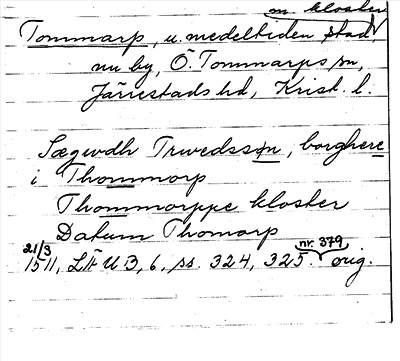 m kloster
Tommarp, u. medeltiden stad,
nu by, Ö. Tommarps sn,
Järrestads hd, Krist. l.
Sægwdh Trwedsson, borghere
i Thommorp
Thommorppe kloster
Datum Thomorp
21/3 nr. 379
1511, LÄUB, 6, ss. 324, 325. orig.